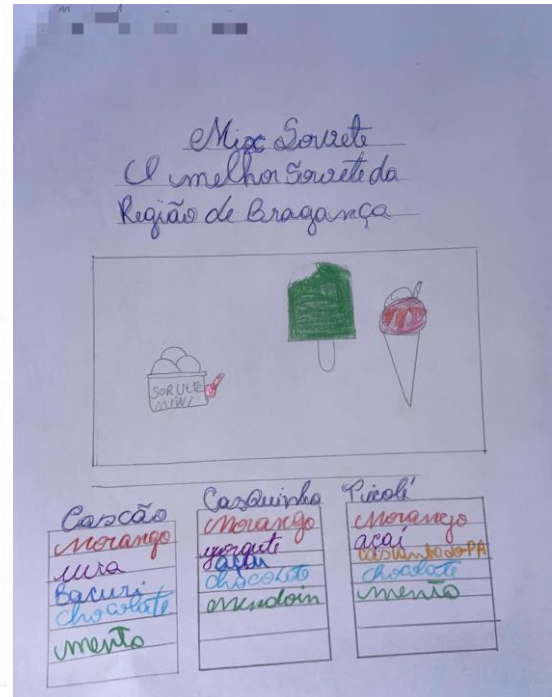 Mix Sovrete
O melhor Sorvete da
Região de Bragança
SORVETE
MINI
Cascão
Morango
uva
Bacuri
chocolate
menta
CasQuinha
Morango
yorgute
açaí
chocolate
mendoin
Picolé
Morango
açaí
castanha do PA
chocolate
menta